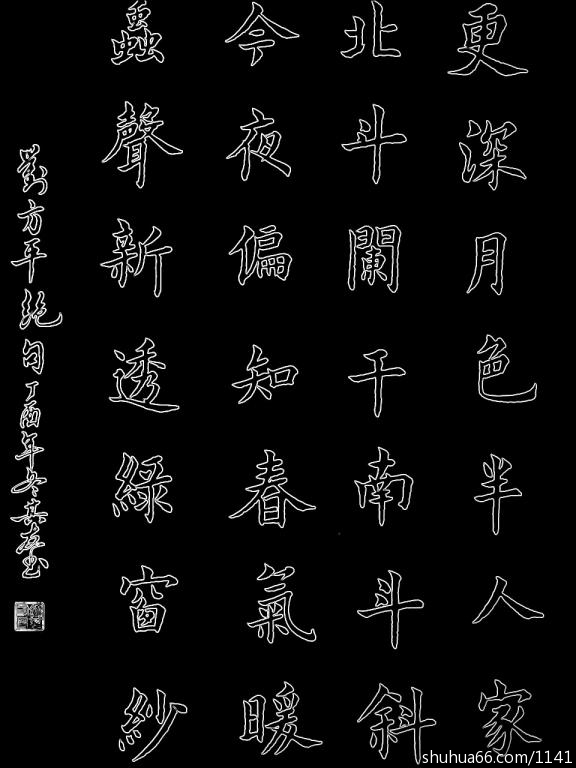 更深月色半人家
北斗闌干南斗斜
今夜偏知春氣暖
蟲聲新透綠窗紗
劉方平絕句丁酉年冬其左书
shuhua66.com/1141